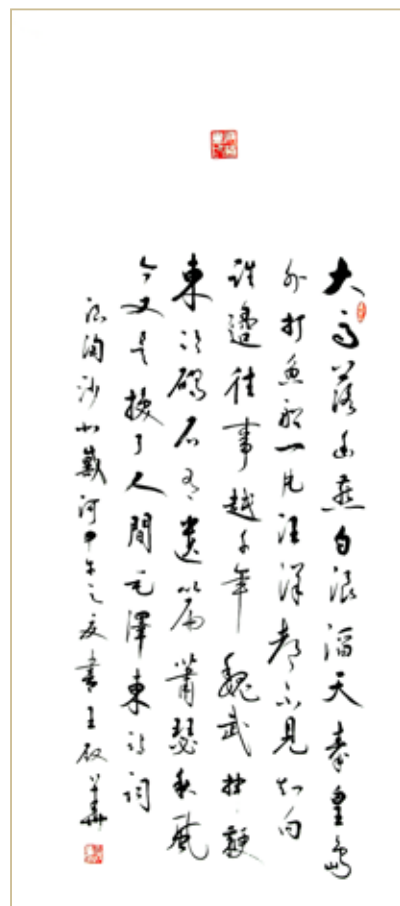 大雨落幽燕白浪滔天秦皇島
外打魚船一片汪洋都不見知向
誰邊往事越千年魏武揮鞭
東臨碣石有遺篇蕭瑟秋風
今又是換了人間毛澤東詩詞
浪淘沙北戴河甲午之夏書王華